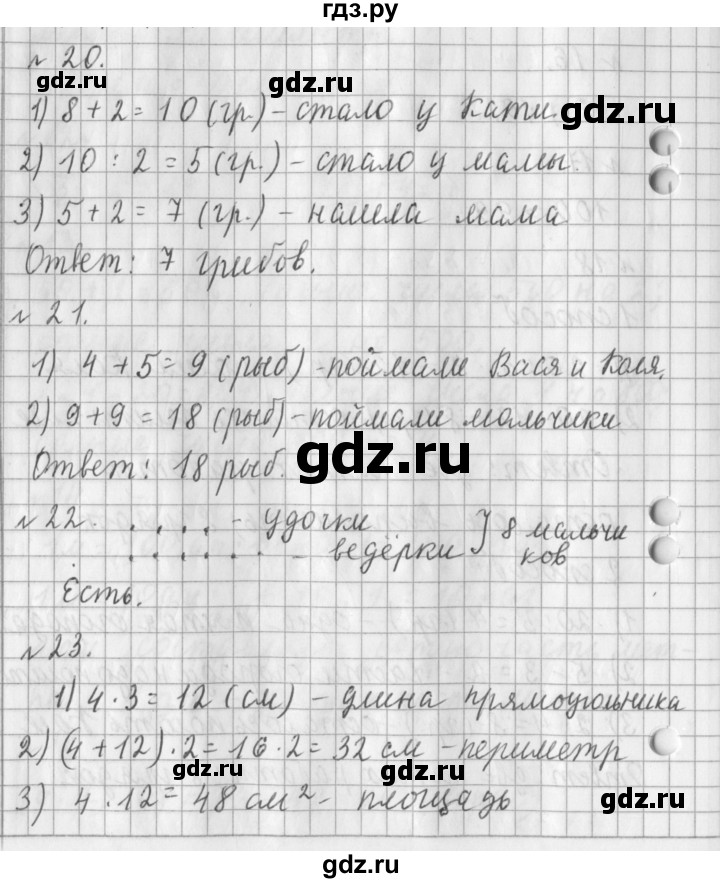 гдз.ру
№ 20.
gdz.ru
1) 8 + 2 = 10 (гр.) - стало у Кати.
gdz.ru
2) 10 : 2 = 5 (гр.) - стало у мамы.
gdz.ru
gdz.ru
3) 5 + 2 = 7 (гр.) - нашла мама
Ответ: 7 грибов.
№ 21.
1) 4 + 5 = 9 (рыб) - поймали Вася и Коля.
2) 9 + 9 = 18 (рыб) - поймали мальчики
Ответ: 18 рыб.
gdz.ru
№ 22. . . . . - удочки } 8 мальчи
. . . . . . - ведёрки ков
Есть.
№ 23.
1) 4 · 3 = 12 (см) - длина прямоугольника
2) (4 + 12) · 2 = 16 · 2 = 32 см - периметр
gdz.ru
gdz.ru
3) 4 · 12 = 48 см² - площадь
gdz.ru
gdz.ru